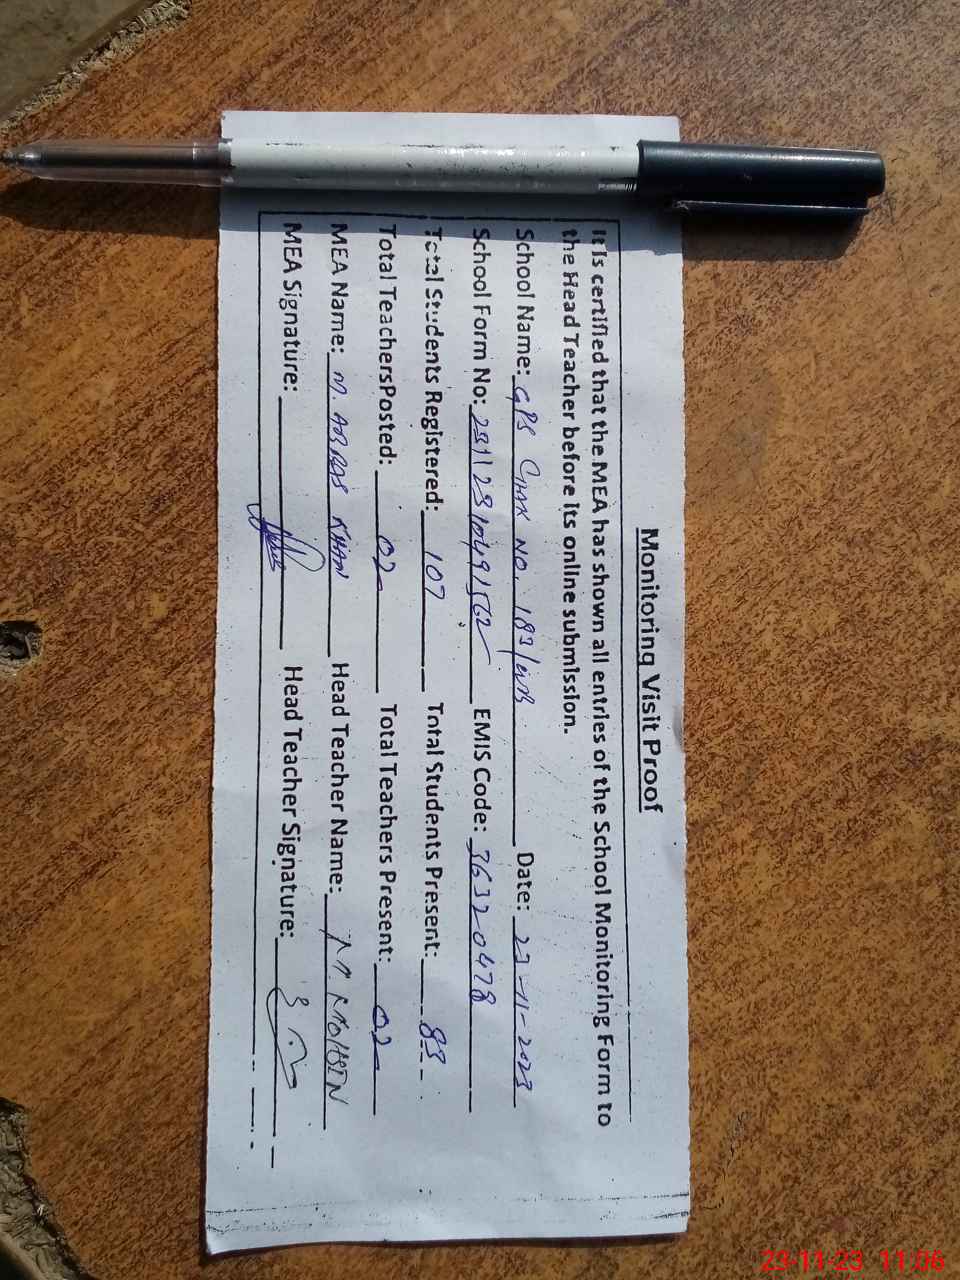 Monitoring Visit Proof
It is certified that the MEA has shown all entries of the School Monitoring Form to
the Head Teacher before its online submission.
School Name: GPS Chak No. 183/WB Date: 23-11-2023
School Form No: 23112310491562 EMIS Code: 36320478
Total Students Registered: 107 Total Students Present: 83
Total TeachersPosted: 02 Total Teachers Present: 02
MEA Name: M. ABBAS KHAN Head Teacher Name: M. MOHSIN
MEA Signature: Head Teacher Signature:
23-11-23 11:06